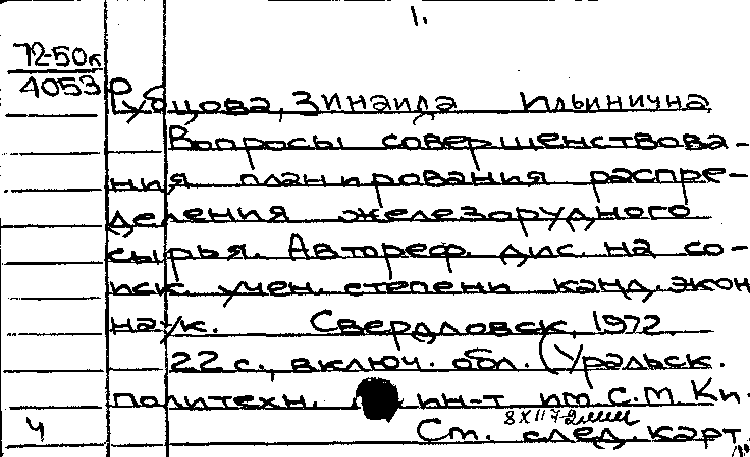 1.
72-50к
4053
Рубцова, Зинаида Ильинична
Вопросы совершенствова-
ния планирования распре-
деления железорудного
сырья. Автореф. дис. на со-
иск. учен. степени канд. экон
наук. Свердловск, 1972.
22 с., включ. обл. (Уральск.
политехн. ин-т им. С. М. Ки-
Ч Ст. след. карт.